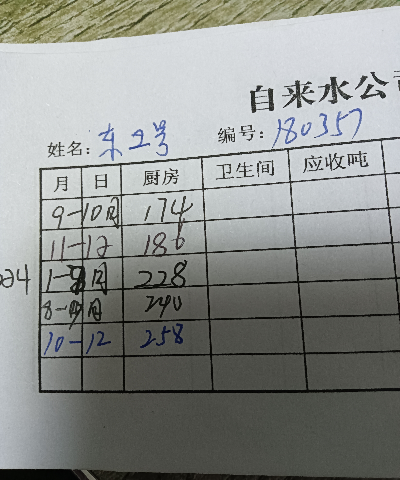 自来水公司
姓名: 东2号 编号: 180357
月 日 厨房 卫生间 应收吨
9-10月 174
11-12 186
2024 1- 月 228
8- 月 240
10-12 258